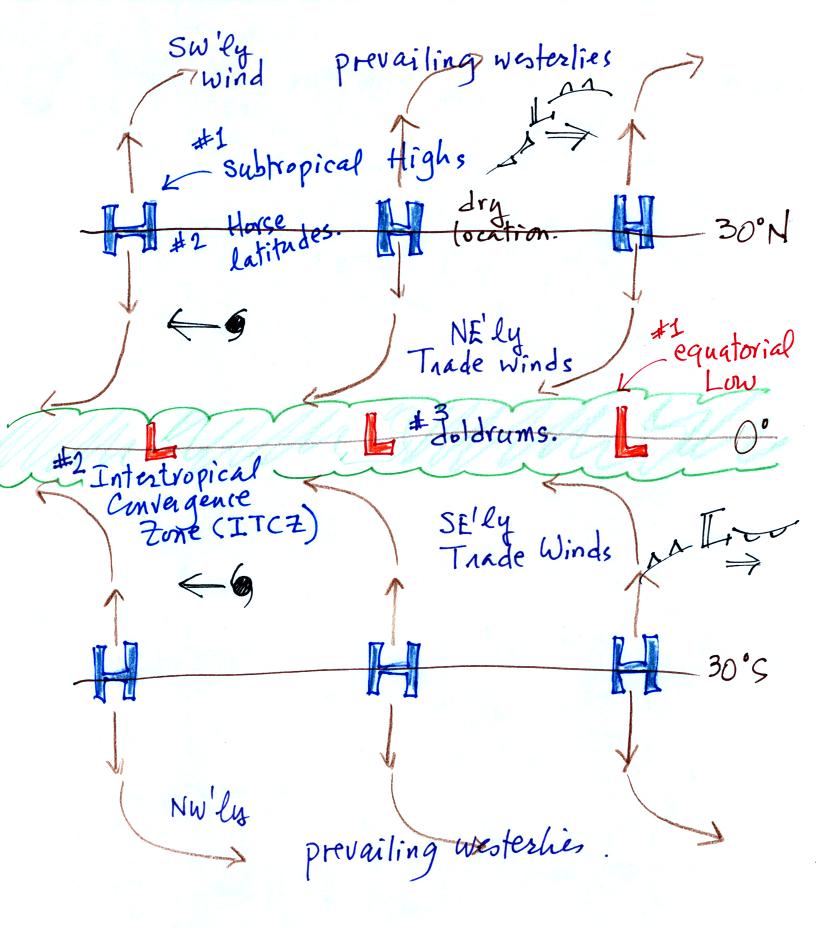 SW'ly
wind
prevailing westerlies
#1
Subtropical Highs
H
#2 Horse
latitudes.
H
dry
location.
H
30°N
NE'ly
Trade winds
#1
equatorial
Low
L
L
#3
doldrums.
L
0°
#2
Intertropical
Convergence
Zone (ITCZ)
SE'ly
Trade Winds
H
H
H
30°S
NW'ly
prevailing westerlies.
L
L